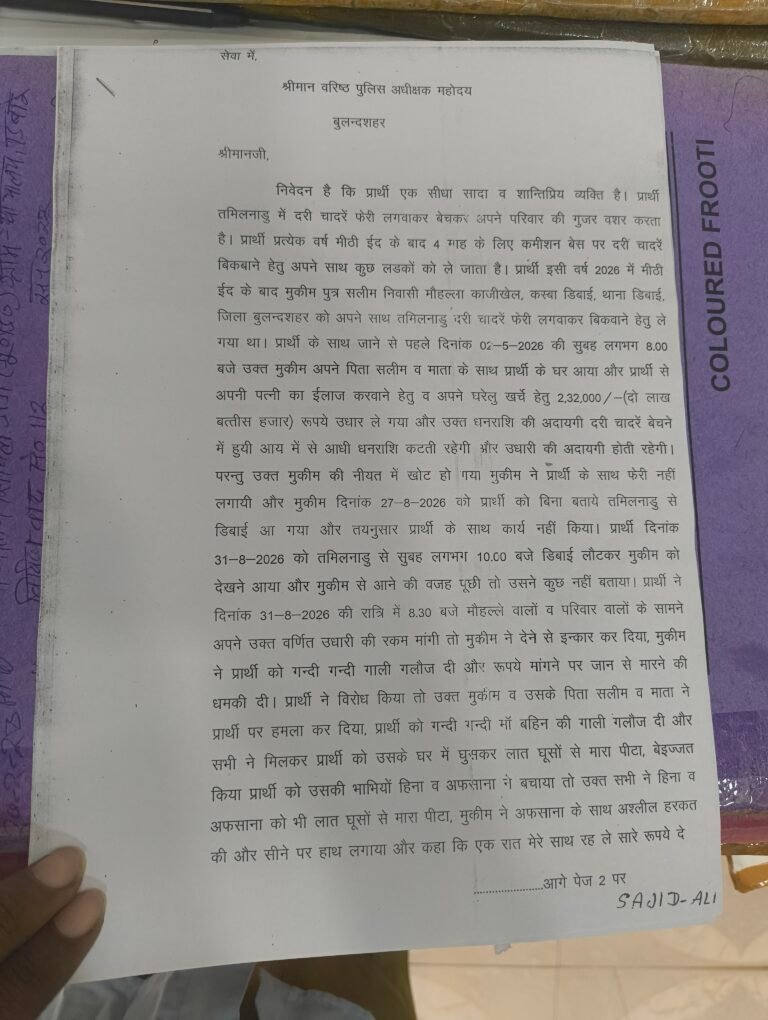 सेवा में,
श्रीमान वरिष्ठ पुलिस अधीक्षक महोदय
बुलन्दशहर
श्रीमानजी,
निवेदन है कि प्रार्थी एक सीधा सादा व शान्तिप्रिय व्यक्ति है। प्रार्थी
तमिलनाडु में दरी चादरें फेरी लगवाकर बेचकर अपने परिवार की गुजर वशर करता
है। प्रार्थी प्रत्येक वर्ष मीठी ईद के बाद 4 माह के लिए कमीशन बेस पर दरी चादरें
बिकबाने हेतु अपने साथ कुछ लडकों को ले जाता है। प्रार्थी इसी वर्ष 2026 में मीठी
ईद के बाद मुकीम पुत्र सलीम निवासी मौहल्ला काजीखेल, कस्बा डिबाई, थाना डिबाई,
जिला बुलन्दशहर को अपने साथ तमिलनाडु दरी चादरें फेरी लगवाकर बिकवाने हेतु ले
गया था। प्रार्थी के साथ जाने से पहले दिनांक 02-5-2026 की सुबह लगभग 8.00
बजे उक्त मुकीम अपने पिता सलीम व माता के साथ प्रार्थी के घर आया और प्रार्थी से
अपनी पत्नी का ईलाज करवाने हेतु व अपने घरेलु खर्चे हेतु 2,32,000/-(दो लाख
बत्तीस हजार) रूपये उधार ले गया और उक्त धनराशि की अदायगी दरी चादरें बेचने
में हुयी आय में से आधी धनराशि कटती रहेगी और उधारी की अदायगी होती रहेगी।
परन्तु उक्त मुकीम की नीयत में खोट हो गया मुकीम ने प्रार्थी के साथ फेरी नहीं
लगायी और मुकीम दिनांक 27-8-2026 को प्रार्थी को बिना बताये तमिलनाडु से
डिबाई आ गया और तयनुसार प्रार्थी के साथ कार्य नहीं किया। प्रार्थी दिनांक
31-8-2026 को तमिलनाडु से सुबह लगभग 10.00 बजे डिबाई लौटकर मुकीम को
देखने आया और मुकीम से आने की वजह पूछी तो उसने कुछ नहीं बताया। प्रार्थी ने
दिनांक 31-8-2026 की रात्रि में 8.30 बजे मौहल्ले वालों व परिवार वालों के सामने
अपने उक्त वर्णित उधारी की रकम मांगी तो मुकीम ने देने से इन्कार कर दिया, मुकीम
ने प्रार्थी को गन्दी गन्दी गाली गलौज दी और रूपये मांगने पर जान से मारने की
धमकी दी। प्रार्थी ने विरोध किया तो उक्त मुकीम व उसके पिता सलीम व माता ने
प्रार्थी पर हमला कर दिया, प्रार्थी को गन्दी गन्दी माँ बहिन की गाली गलौज दी और
सभी ने मिलकर प्रार्थी को उसके घर में घुसकर लात घूसों से मारा पीटा, बेइज्जत
किया प्रार्थी को उसकी भाभियों हिना व अफसाना ने बचाया तो उक्त सभी ने हिना व
अफसाना को भी लात घूसों से मारा पीटा, मुकीम ने अफसाना के साथ अश्लील हरकत
की और सीने पर हाथ लगाया और कहा कि एक रात मेरे साथ रह ले सारे रूपये दे
......................आगे पेज 2 पर
SAJID-ALI
COLOURED FROOTI